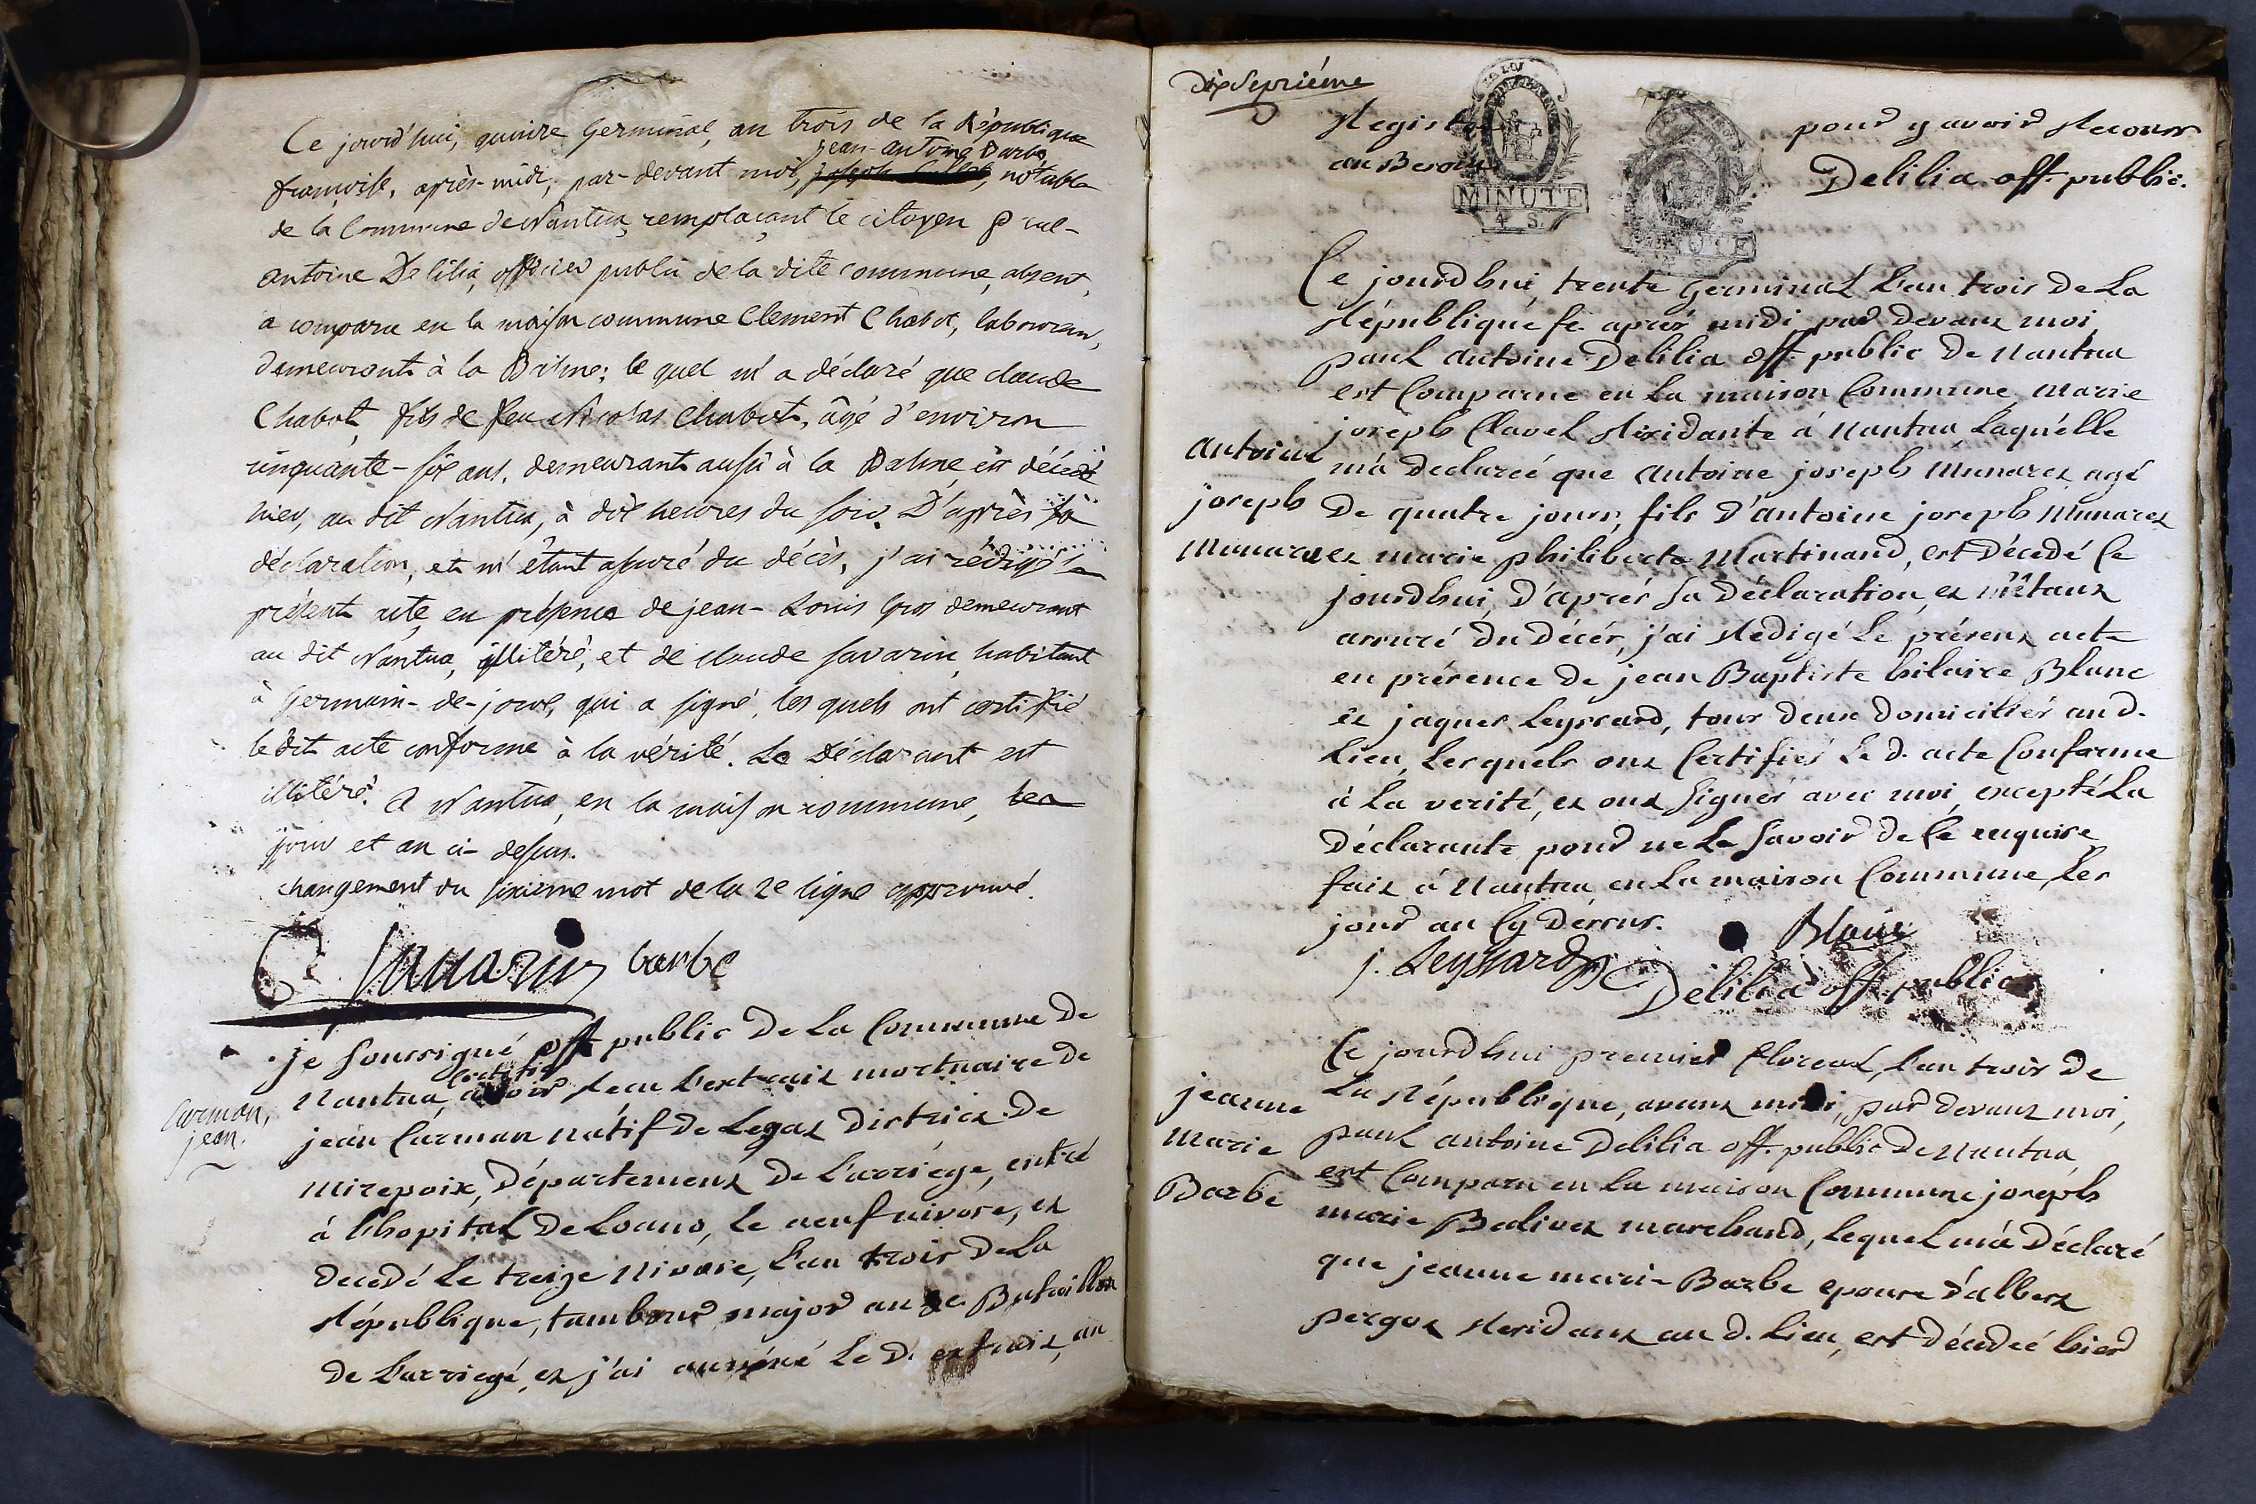 Ce jourd'hui, quinze Germinal, an trois de la République
jean-antoine Barbe,
françoise, après-midi, par-devant moi, joseph, notable
de la Commune de Nantua, remplaçant le citoyen Paul-
antoine Delilia, officier public de la dite commune, absent,
a comparu en la maison commune Clement Chabot, laboureur,
demeurant à la Balme; le quel m'a déclaré que claude
Chabot, fils de feu Nicolas Chabot, âgé d'environ
cinquante-six ans, demeurant aussi à la Balme, est décédé
hier, au dit Nantua, à dix heures du soir. D'après sa
déclaration, et m'étant assuré du décès, j'ai rédigé le
présent acte, en présence de jean-Louis Gros demeurant
au dit Nantua, illitéré, et de Claude Savarin, habitant
à Germain-de-joux, qui a signé, les quels ont certifié
le dit acte conforme à la vérité. Le Déclarant est
illitéré. A Nantua, en la maison commune, les
jour et an ci-dessus.
changement du sixieme mot de la 2e ligne approuvé.
C. Savarin barbe
je soussigné off public de La Commune de
certifie
Nantua, avoir Reçu L'extrait mortuaire de
Carmon,
jean.
jean Carman nátif de Legat District de
Mirepoix, Département de L'arriege, entré
à l'hopital de Loano, le neuf nivose, et
decedé Le treize Nivose, L'an trois De La
République, tambour major au 3e Bataillon
de L'arriegé, et j'ai annéxé Le D. extrait, au
Dix Septiéme
Registre pour y avoir Recours
au Besoin Delilia off. public.
MINUTE
4 S.
Ce jourdhui, trente Germinal L'an trois De La
République fe. aprés midi, par Devant moi,
paul antoine Delilia off. public De Nantua
est Comparue en La maison Commune, Marie
joseph Clavel Résidante á Nantua, Laquélle
Antoine
joseph
Munaret
m'a Declareé que Antoine joseph Munaret, agé
De quatre jours, fils D'antoine joseph Munaret
et marie philiberte Martinand, est Décedé Ce
jourdhui, D'aprés Sa Déclaration, et m'étant
assuré Du Décés, j'ai Redigé Le présent acte
en présence De jean Baptiste hilaire Blanc
et jaques Leyssard, tous deux Domiciliés au d.
Lieu, Lesquéls ont Certifiés Le d. acte Conforme
à La verité, et ont Signés avec moi, excepté La
Déclarante pour ne Le Savoir De Ce enquise,
fait á Nantua, en La maison Commune, Les
jour an Cy Dessus. Blanc
j. Leyssard Delilia off. public
Ce jourdhui premier floreal, L'an trois De
La République, avant midi, par Devant moi,
jeanne
Marie
Barbe
paul antoine Delilia off. public De Nantua,
est Comparu en La maison Commune joseph
marie Balivet marchand, Lequel m'á Déclaré
que jeanne marie Barbe epouse d'albert
pergos Residant au d. Lieu, est décédeé hier